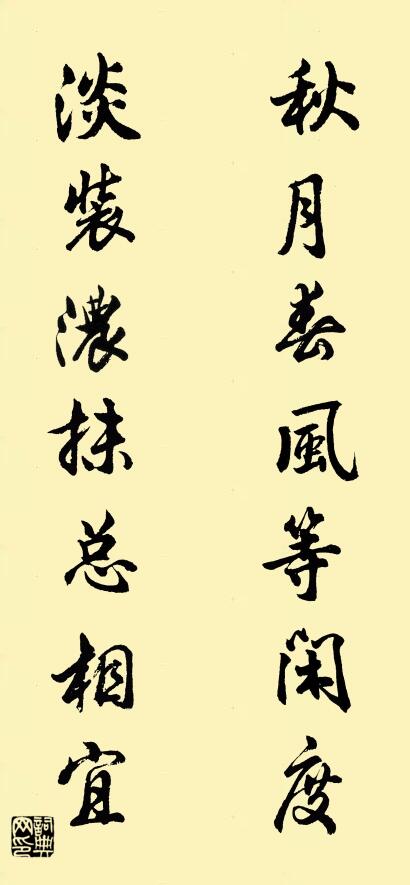 秋月春風等閑度
淡裝濃抹总相宜
詞典网印